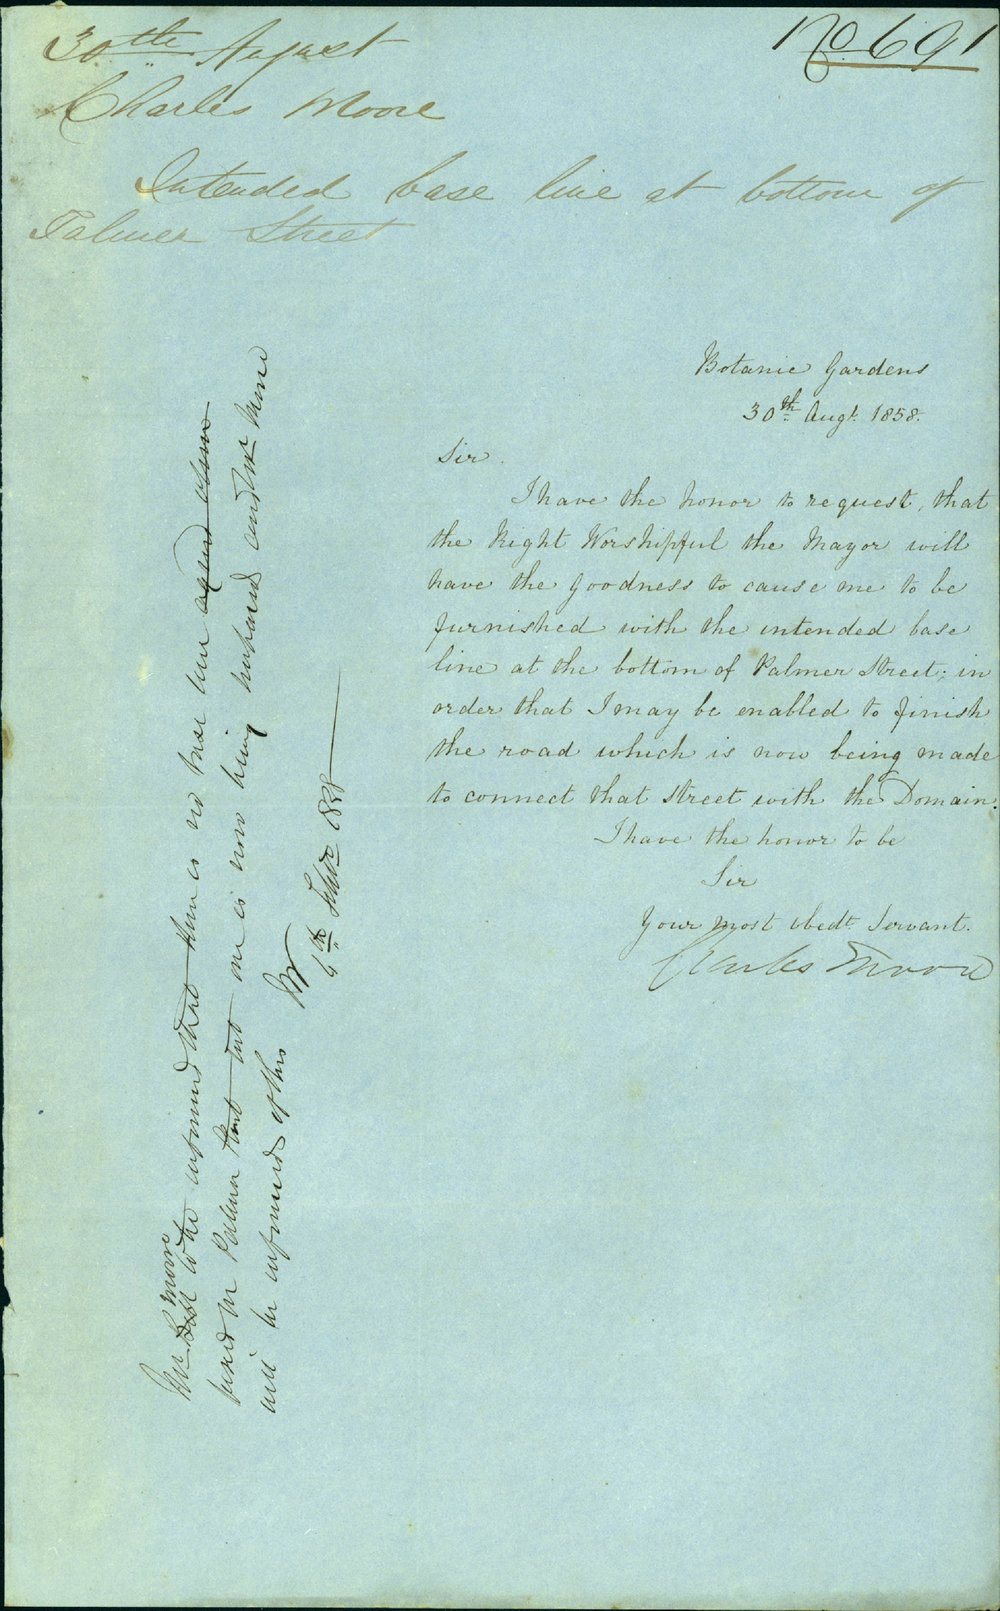 No. 691
30th August
Charles Moore
Intended base line at bottom of
Palmer Street
Botanic Gardens
30th Augt. 1858.
Sir.
I have the honor to request, that
the Right Worshipful the Mayor will
have the goodness to cause me to be
furnished with the intended base
line at the bottom of Palmer Street; in
order that I may be enabled to finish
the road which is now being made
to connect that street with the Domain.
I have the honor to be
Sir
Your most obedt Servant.
Charles Moore
Mr Moore to be informed that there is no base line
fixed in Palmer but one is now being prepared and Mr Moore
will be informed of this
6th Septr 1858